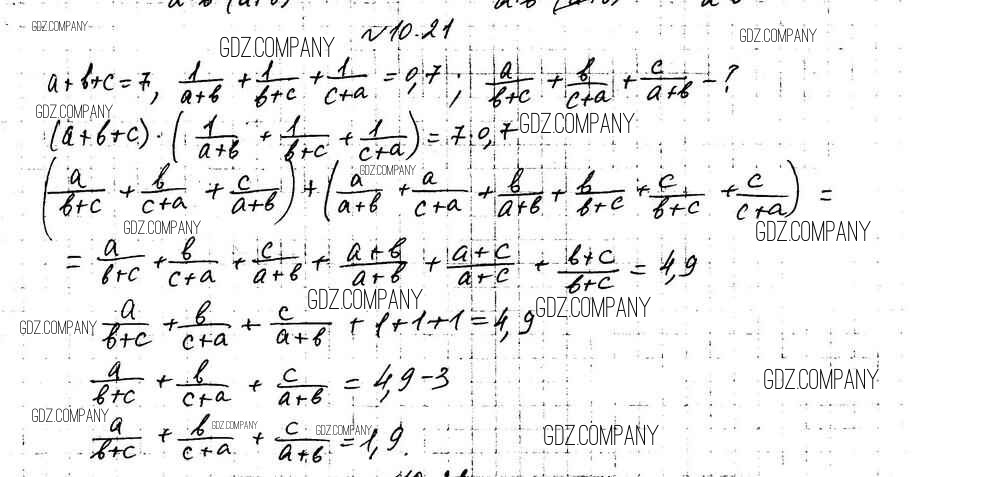 GDZ.COMPANY
№10.21
GDZ.COMPANY
GDZ.COMPANY
a+b+c=7, 1/(a+b) + 1/(b+c) + 1/(c+a) = 0,7; a/(b+c) + b/(c+a) + c/(a+b) - ?
GDZ.COMPANY
(a+b+c)·(1/(a+b) + 1/(b+c) + 1/(c+a)) = 7·0,7
GDZ.COMPANY
GDZ.COMPANY
(a/(b+c) + b/(c+a) + c/(a+b)) + (a/(a+b) + a/(c+a) + b/(a+b) + b/(b+c) + c/(b+c) + c/(c+a)) =
GDZ.COMPANY
GDZ.COMPANY
= a/(b+c) + b/(c+a) + c/(a+b) + (a+b)/(a+b) + (a+c)/(a+c) + (b+c)/(b+c) = 4,9
GDZ.COMPANY
GDZ.COMPANY
GDZ.COMPANY
a/(b+c) + b/(c+a) + c/(a+b) + 1+1+1 = 4,9
a/(b+c) + b/(c+a) + c/(a+b) = 4,9-3
GDZ.COMPANY
GDZ.COMPANY
GDZ.COMPANY
GDZ.COMPANY
GDZ.COMPANY
a/(b+c) + b/(c+a) + c/(a+b) = 1,9.